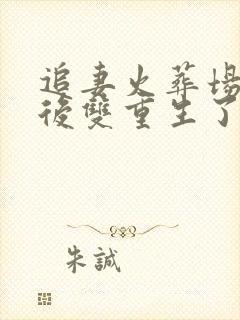 追妻火葬場
後雙重生了
朱誠